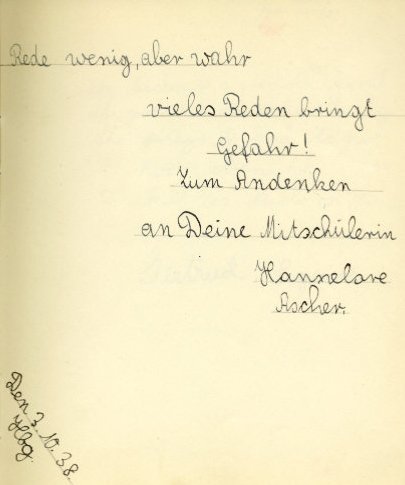 Rede wenig, aber wahr
vieles Reden bringt
Gefahr!
Zum Andenken
an Deine Mitschülerin
Hannelore
Ascher.
Den 3.10.38.
Hbg.